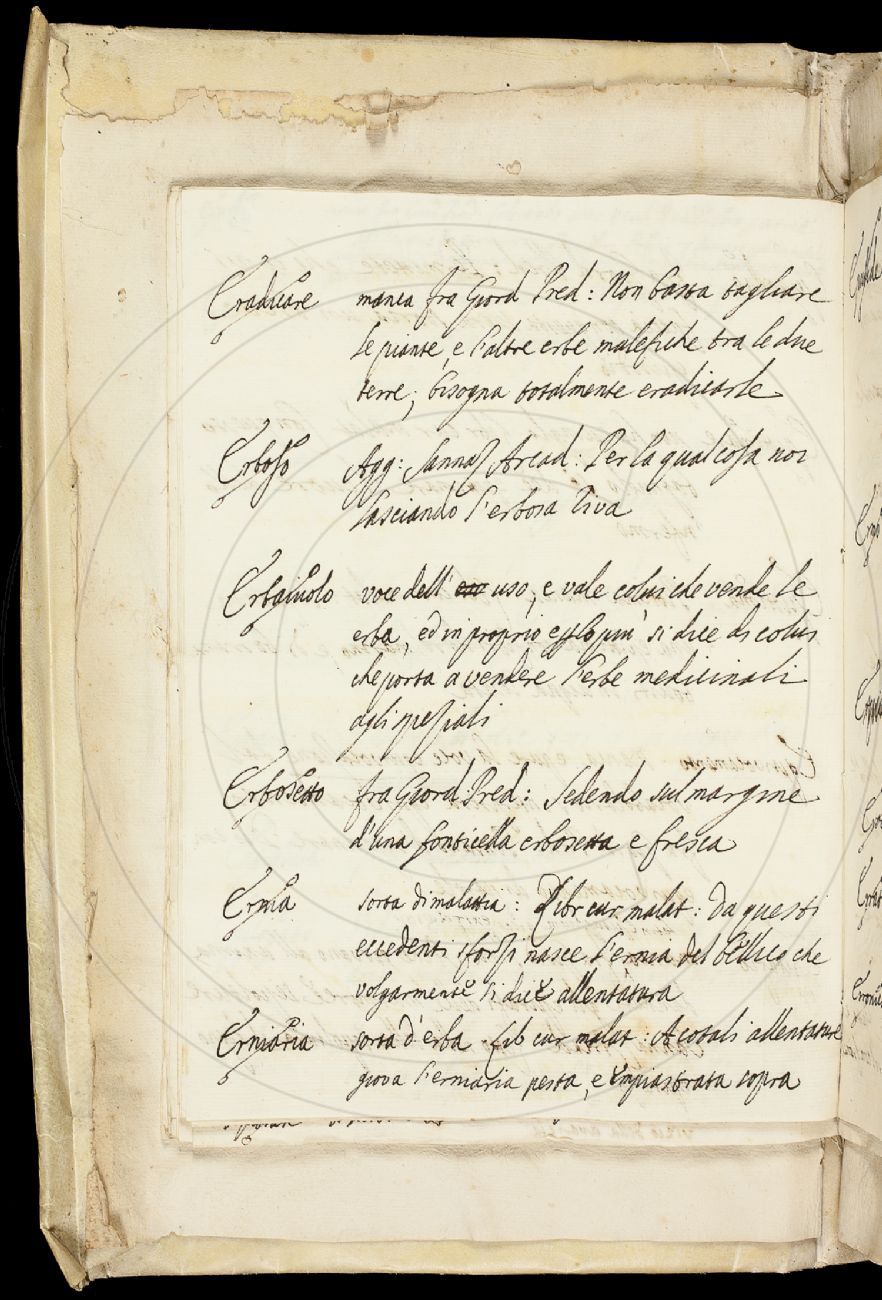 Eradicare manca fra Giord Pred: Non basta tagliare
le piante, e l'altre erbe malefiche tra le due
terre; bisogna totalmente eradicarle
Erboso Agg: Sannaz Arcad: Per la qual cosa noi
lasciando l'erbosa riva
Erbaiuolo voce dell' uso, e vale colui che vende le
erbe, ed in proprio e si dice di colui
che porta a vendere l'erbe medicinali
agli speziali
Erbosetto fra Giord Pred: Sedendo sul margine
d'una fonticella erbosetta e fresca
Ernia sorta di malattia: Libr cur malat: Da questi
eccedenti sforzi nasce l'ernia del bellico che
volgarmente si dice allentatura
Erniaria sorta d'erba. Lib cur malat: A cotali allentature
giova l'erniaria pesta, e impiastrata sopra